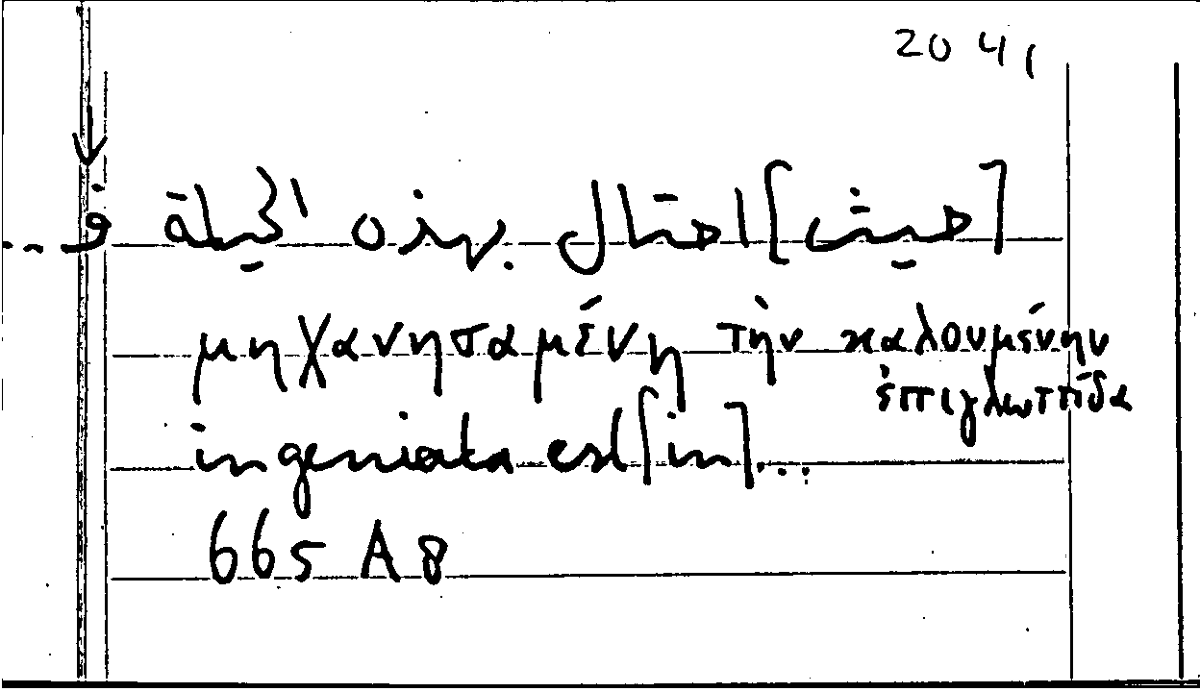 2041
[حيث] احتال بهذه الحيلة في ...
μηχανησαμένη τὴν καλουμένην
ἐπιγλωττίδα
ingeniata est [in]...
665 A 8